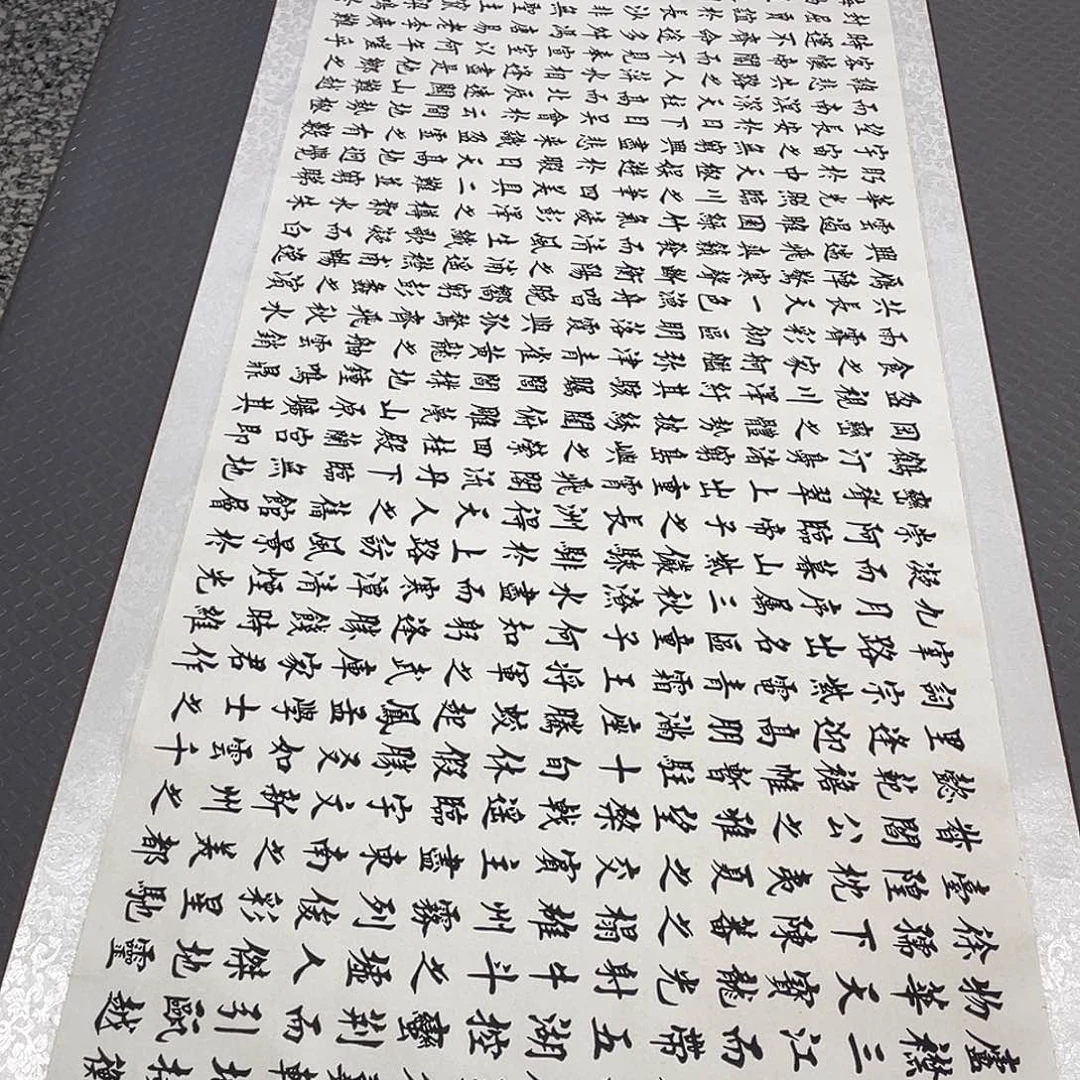 軫地接衡
廬襟三江而帶五湖控蠻荊而引甌越
物華天寶龍光射牛斗之墟人傑地靈
徐孺下陳蕃之榻雄州霧列俊彩星馳
臺隍枕夷夏之交賓主盡東南之美都
督閻公之雅望棨戟遙臨宇文新州之
懿範襜帷暫駐十旬休假勝友如雲千
里逢迎高朋滿座騰蛟起鳳孟學士之
詞宗紫電青霜王將軍之武庫家君作
宰路出名區童子何知躬逢勝餞時維
九月序屬三秋潦水盡而寒潭清煙光
凝而暮山紫儼驂騑於上路訪風景於
崇阿臨帝子之長洲得天人之舊館層
巒聳翠上出重霄飛閣流丹下臨無地
鶴汀鳧渚窮島嶼之縈回桂殿蘭宮即
岡巒之體勢披繡闥俯雕甍山原曠其
盈視川澤紆其駭矚閭閻撲地鐘鳴鼎
食之家舸艦彌津青雀黃龍之舳雲銷
雨霽彩徹區明落霞與孤鶩齊飛秋水
共長天一色漁舟唱晚響窮彭蠡之濱
雁陣驚寒聲斷衡陽之浦遙襟甫暢逸
興遄飛爽籟發而清風生纖歌凝而白
雲遏睢園綠竹氣凌彭澤之樽鄴水朱
華光照臨川之筆四美具二難並窮睇
眄於中天極娛遊於暇日天高地迥覺
宇宙之無窮興盡悲來識盈虛之有數
望長安於日下目吳會於雲間地勢極
而南溟深天柱高而北辰遠關山難越
誰悲失路之人萍水相逢盡是他鄉之
客懷帝閽而不見奉宣室以何年嗟乎
時運不齊命途多舛馮唐易老李廣難